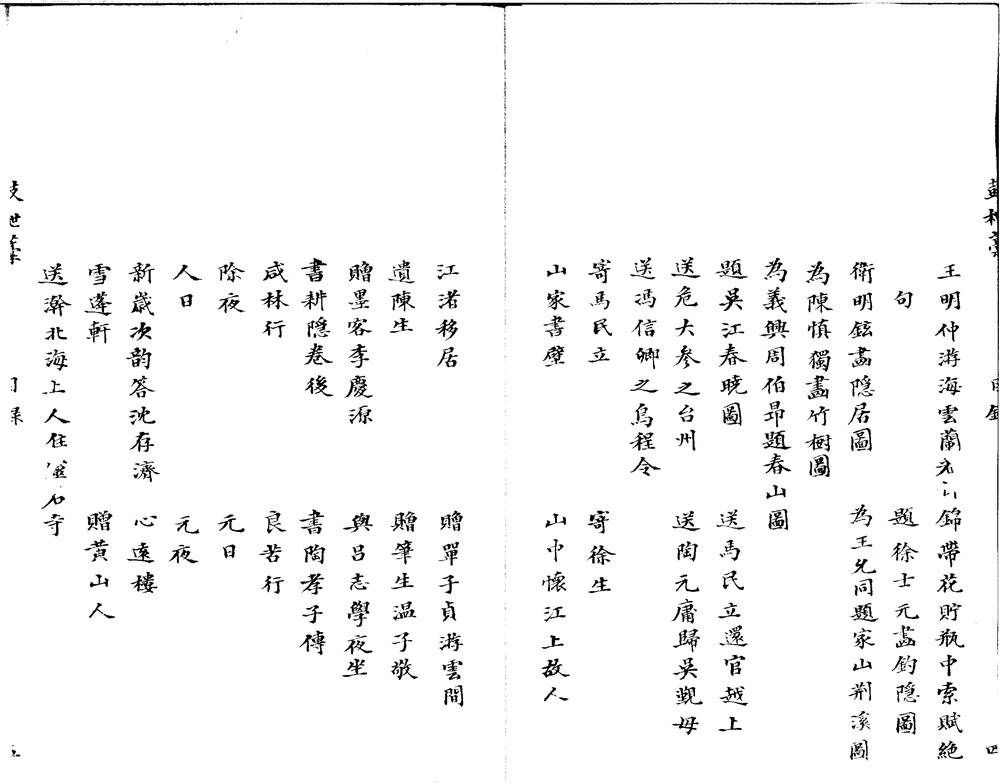 王明仲游海雲蘭 錦帶花貯瓶中索賦絕
句 題徐士元畫釣隱圖
衛明鉉畫隱居圖 為王允同題家山荆溪圖
為陳慎獨畫竹樹圖
為義興周伯昂題春山圖
題吳江春曉圖 送馬民立還官越上
送危大參之台州 送陶元庸歸吳覲母
送馮信卿之烏程令
寄馬民立 寄徐生
山家書壁 山中懷江上故人
四
江渚移居 贈單子貞游雲間
遺陳生 贈筆生温子敬
贈墨客李慶源 與呂志學夜坐
書耕隱卷後 書陶孝子傳
咸林行 良苦行
除夜 元日
人日 元夜
新歲次韵答沈存濟 心遠樓
雪蓬軒 贈黃山人
送瀚北海上人住 石寺
目錄
五